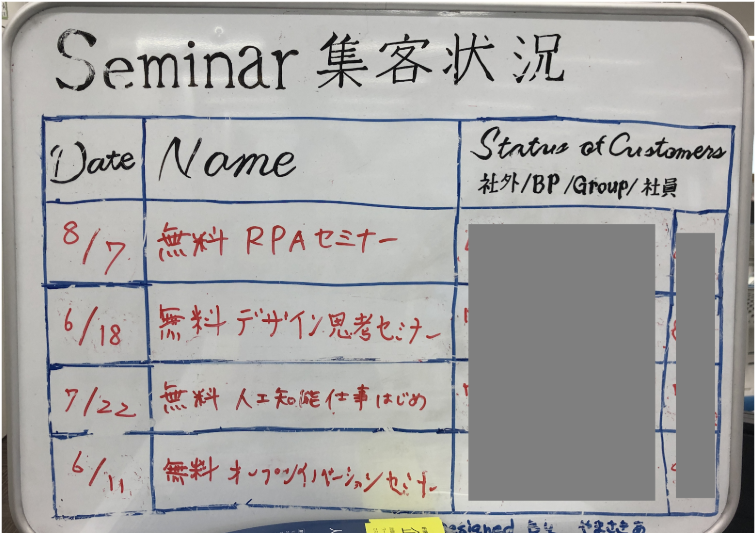 Seminar 集客状況
Date Name Status of Customers
社外/BP/Group/社員
8/7 無料 RPAセミナー
6/18 無料 デザイン思考セミナー
7/22 無料 人工知能仕事はじめ
6/11 無料 オープンイノベーションセミナー
Designed by やまざきあ